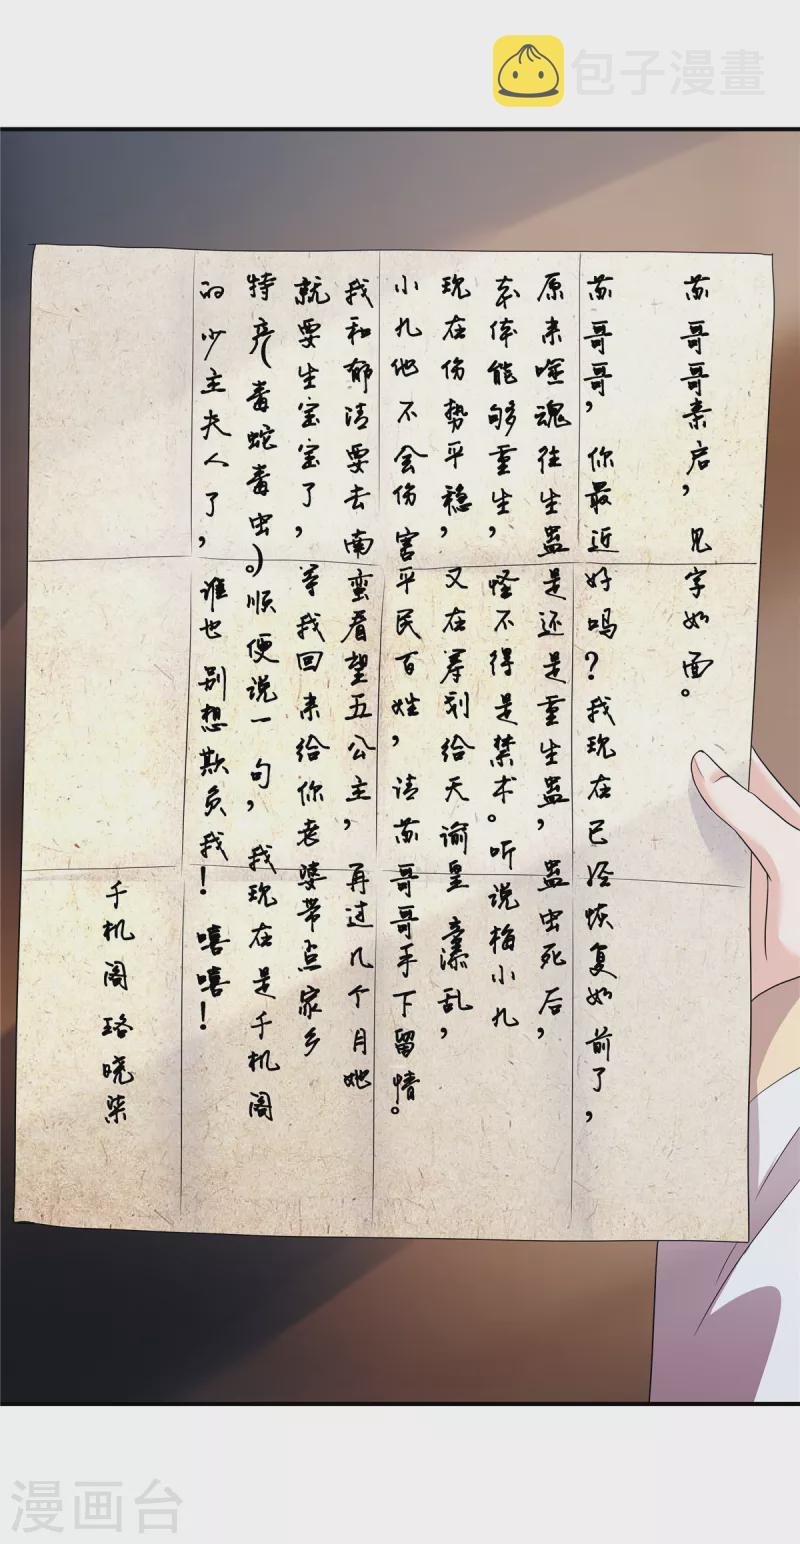 包子漫畫
苏哥哥亲启，见字如面。
苏哥哥，你最近好吗？我现在已经恢复如前了，
原来噬魂往生蛊是还是重生蛊，蛊虫死后，
本体能够重生，怪不得是禁术。听说梅小九
现在伤势平稳，又在筹划给天谕皇室添乱，
小九他不会伤害平民百姓，请苏哥哥手下留情。
我和郁清要去南蛮看望五公主，再过几个月她
就要生宝宝了，等我回来给你老婆带点家乡
特产（毒蛇毒虫。）顺便说一句，我现在是千机阁
的少主夫人了，谁也别想欺负我！嘻嘻！
千机阁 珞晓柒
漫画台